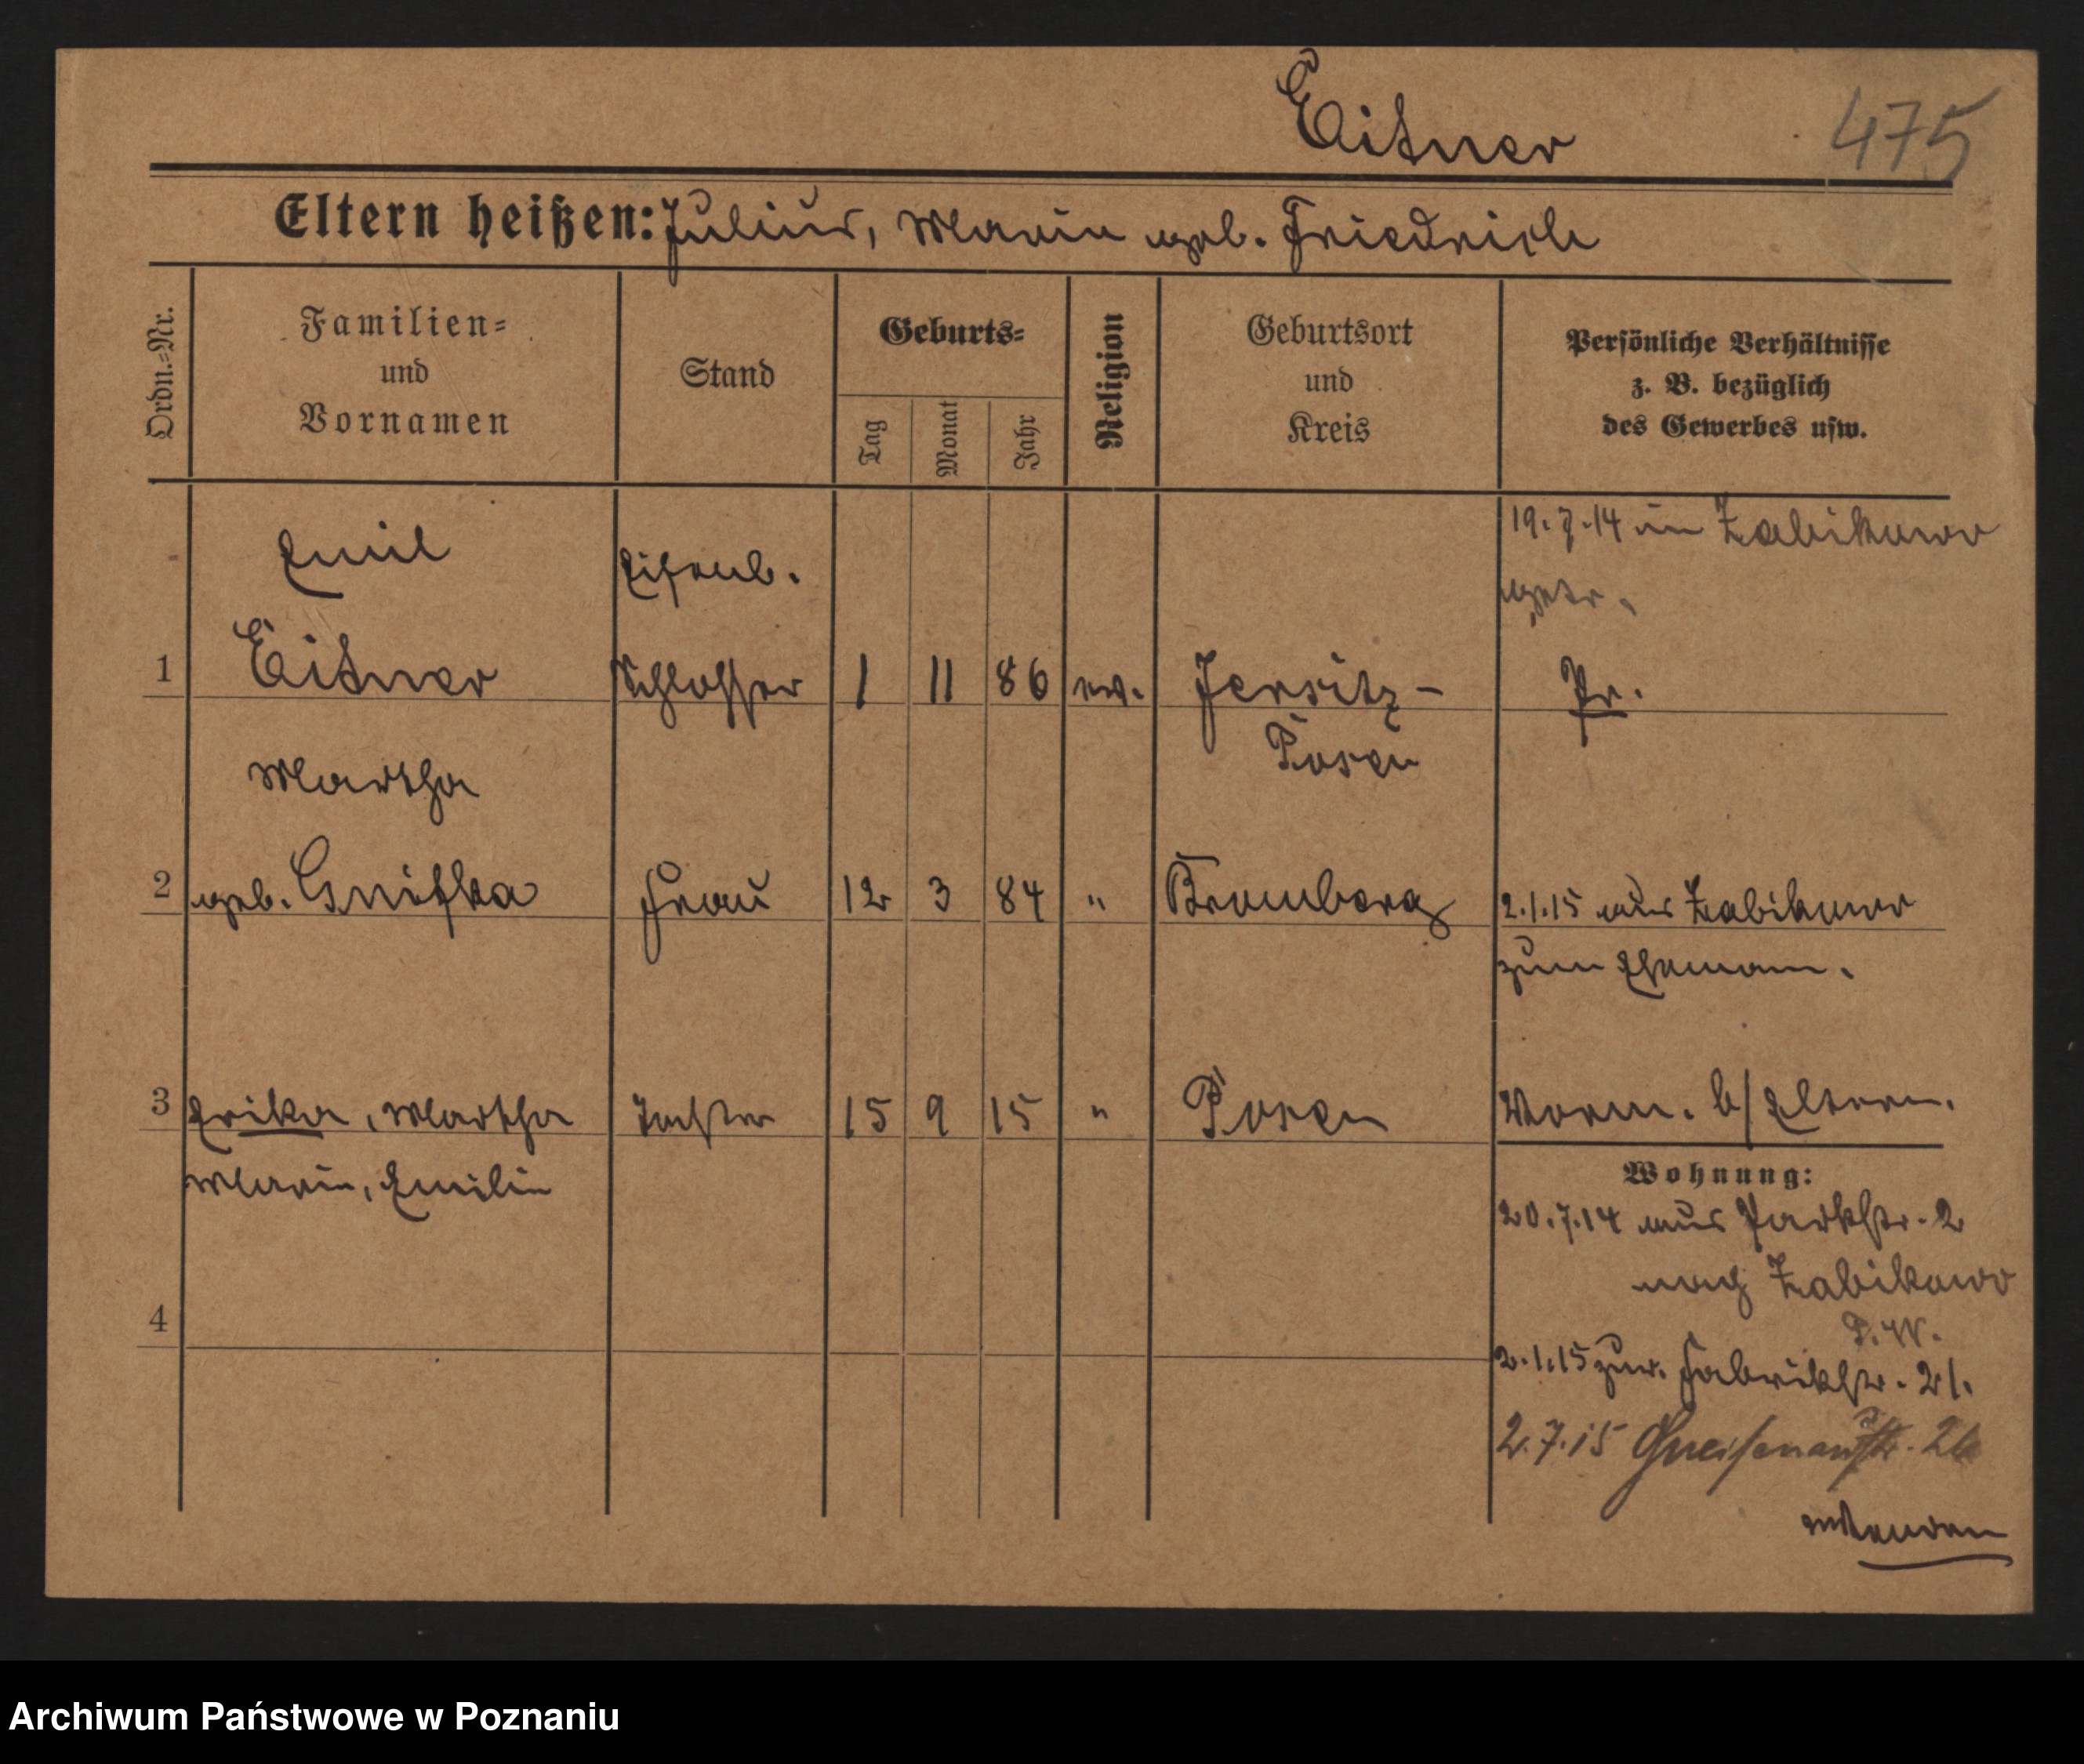 Eitner
475
Eltern heißen: Julius, Marie geb. Friedrich
Ordn.-Nr.
Familien-
und
Vornamen
Stand
Geburts-
Tag
Monat
Jahr
Religion
Geburtsort
und
Kreis
Persönliche Verhältnisse
z. B. bezüglich
des Gewerbes usw.
Emil
Eisenb.
19.7.14 in Zabikowo
getr.
1 Eitner Schlosser 1 11 86 ev. Jersitz-
Posen
Pr.
Martha
2 geb. Gnifka Frau 12 3 84 " Bromberg 2.1.15 aus Zabikowo
zum Ehemann.
3 Erika, Martha Tochter 15 9 15 " Posen Worm. b/Eltern.
Marie, Emilie
Wohnung:
20.7.14 aus Parkstr. 2
nach Zabikowo
P.W.
4
2.1.15 zur. Fabrikstr. 21.
2.7.15 Gneisenaustr. 26
Archiwum Państwowe w Poznaniu